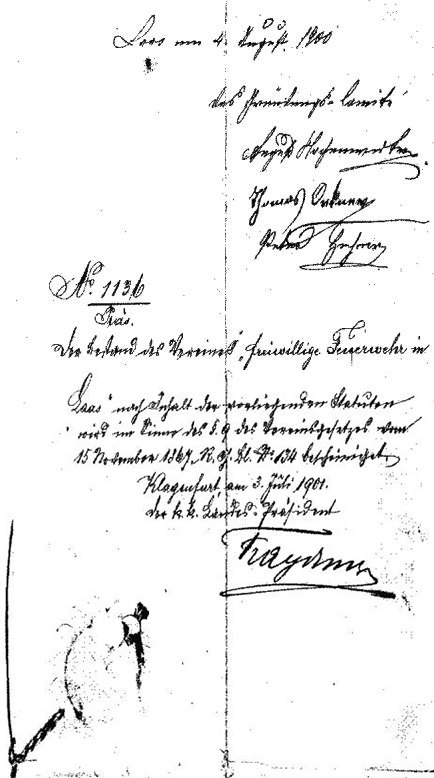 Laas am 4. August 1900
das Gründungs-Comité
August
Thomas Ortner
Peter
No. 1136
Präs.
Der Bestand des Vereines „freiwillige Feuerwehr in
Laas“ nach Inhalt der vorliegenden Statuten
wird im Sinne des §. 9 des Vereinsgesetzes vom
15 November 1867, R. G. Bl. No. 134 bescheiniget.
Klagenfurt, am 3. Juli 1901.
der k. k. Landes-Präsident